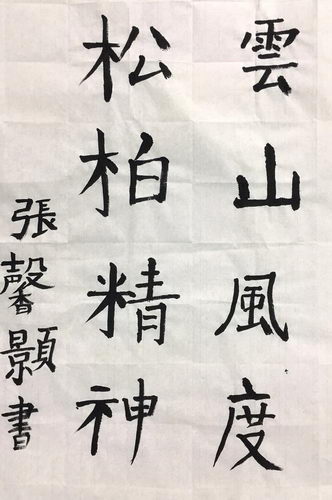 雲山風度
松柏精神
張馨顥書